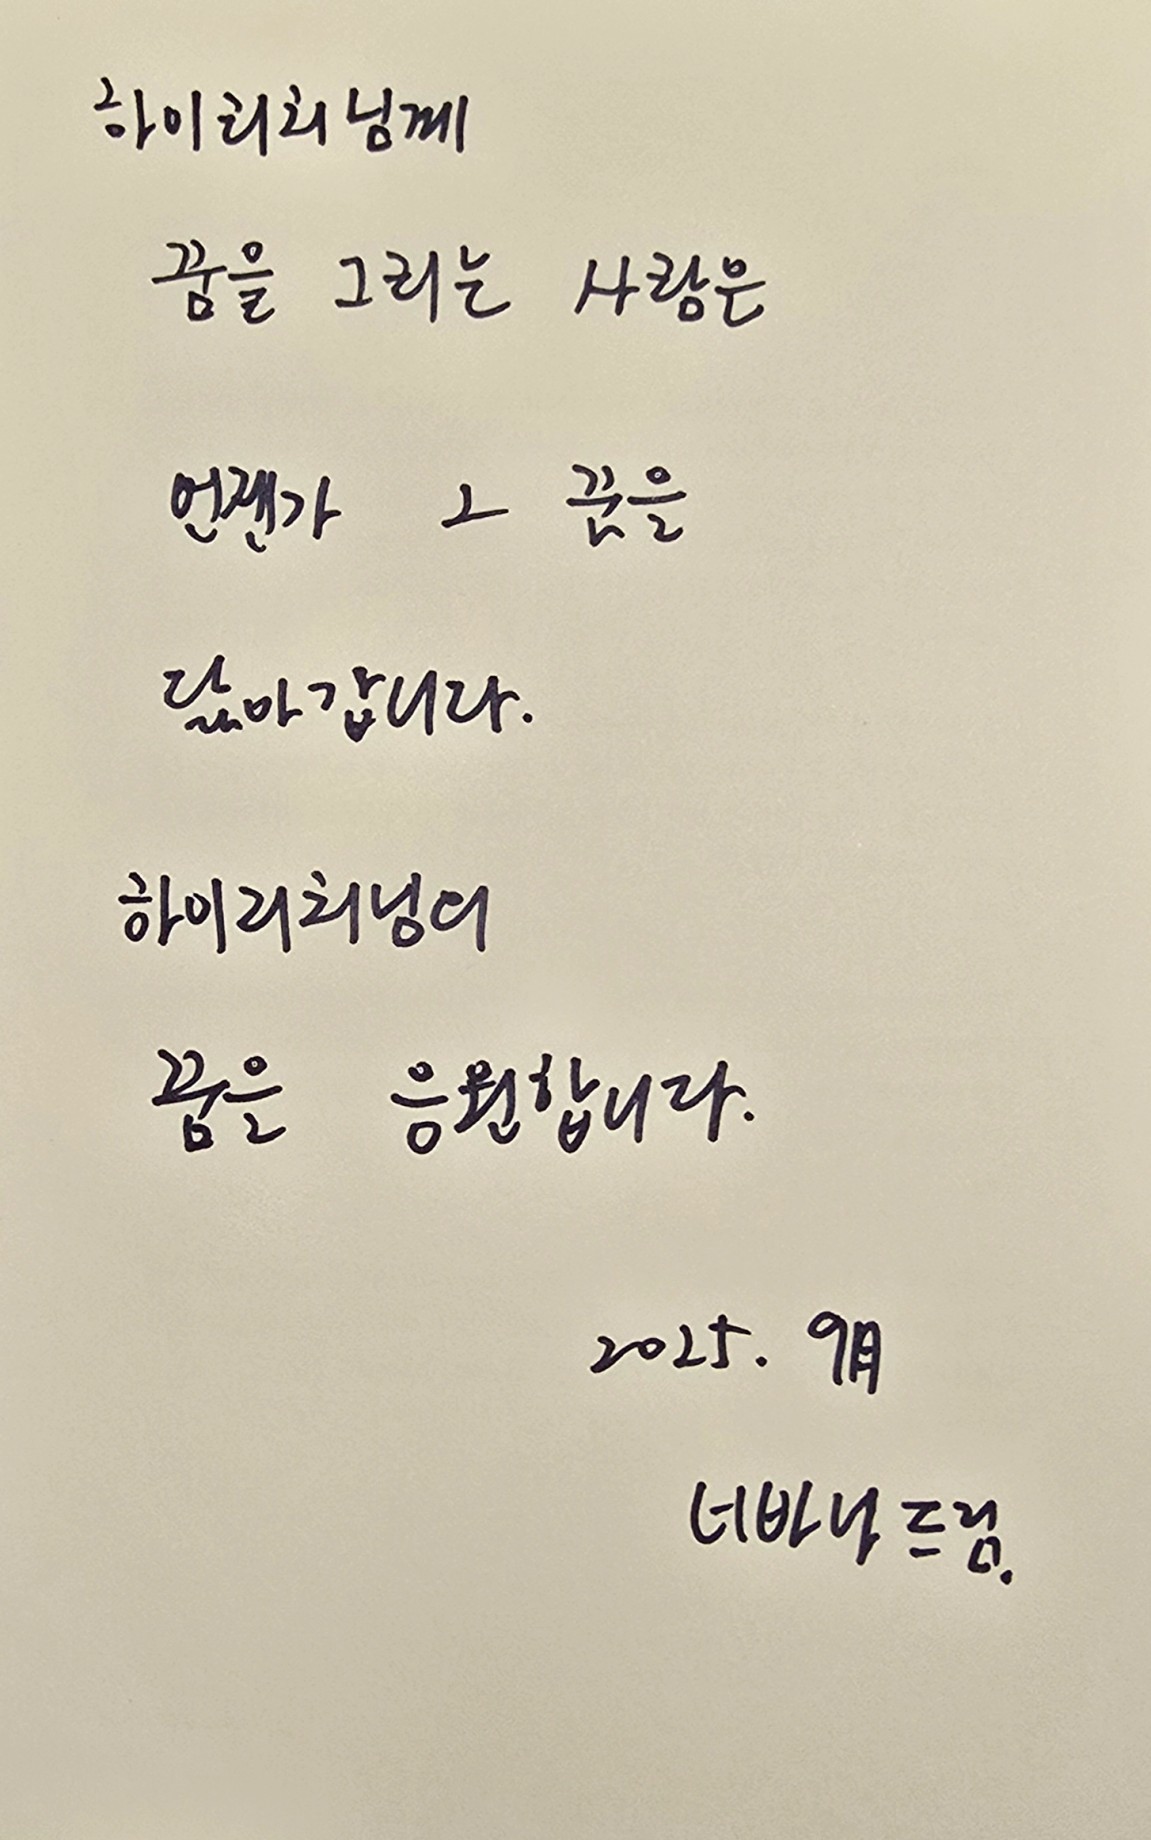 하이리치님께
꿈을 그리는 사람은
언젠가 그 꿈을
닮아갑니다.
하이리치님의
꿈을 응원합니다.
2025. 9月
너바나 드림.